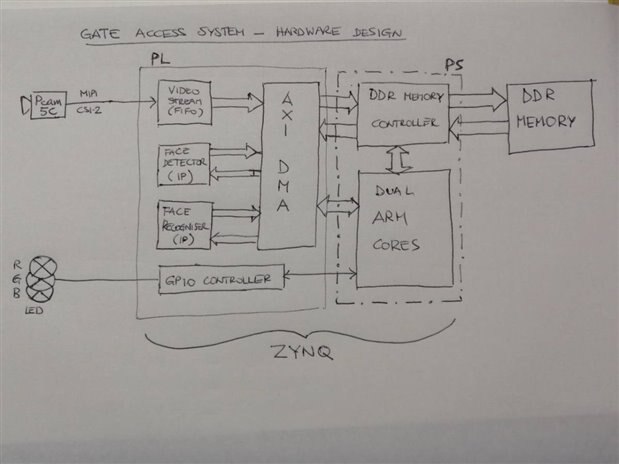 GATE ACCESS SYSTEM – HARDWARE DESIGN
PL
PS
Pcam
5C
MIPI
CSI-2
VIDEO
STREAM
(FIFO)
AXI DMA
DDR MEMORY
CONTROLLER
DDR
MEMORY
FACE
DETECTOR
(IP)
FACE
RECOGNISER
(IP)
DUAL
ARM
CORES
R
G
B
LED
GPIO CONTROLLER
ZYNQ